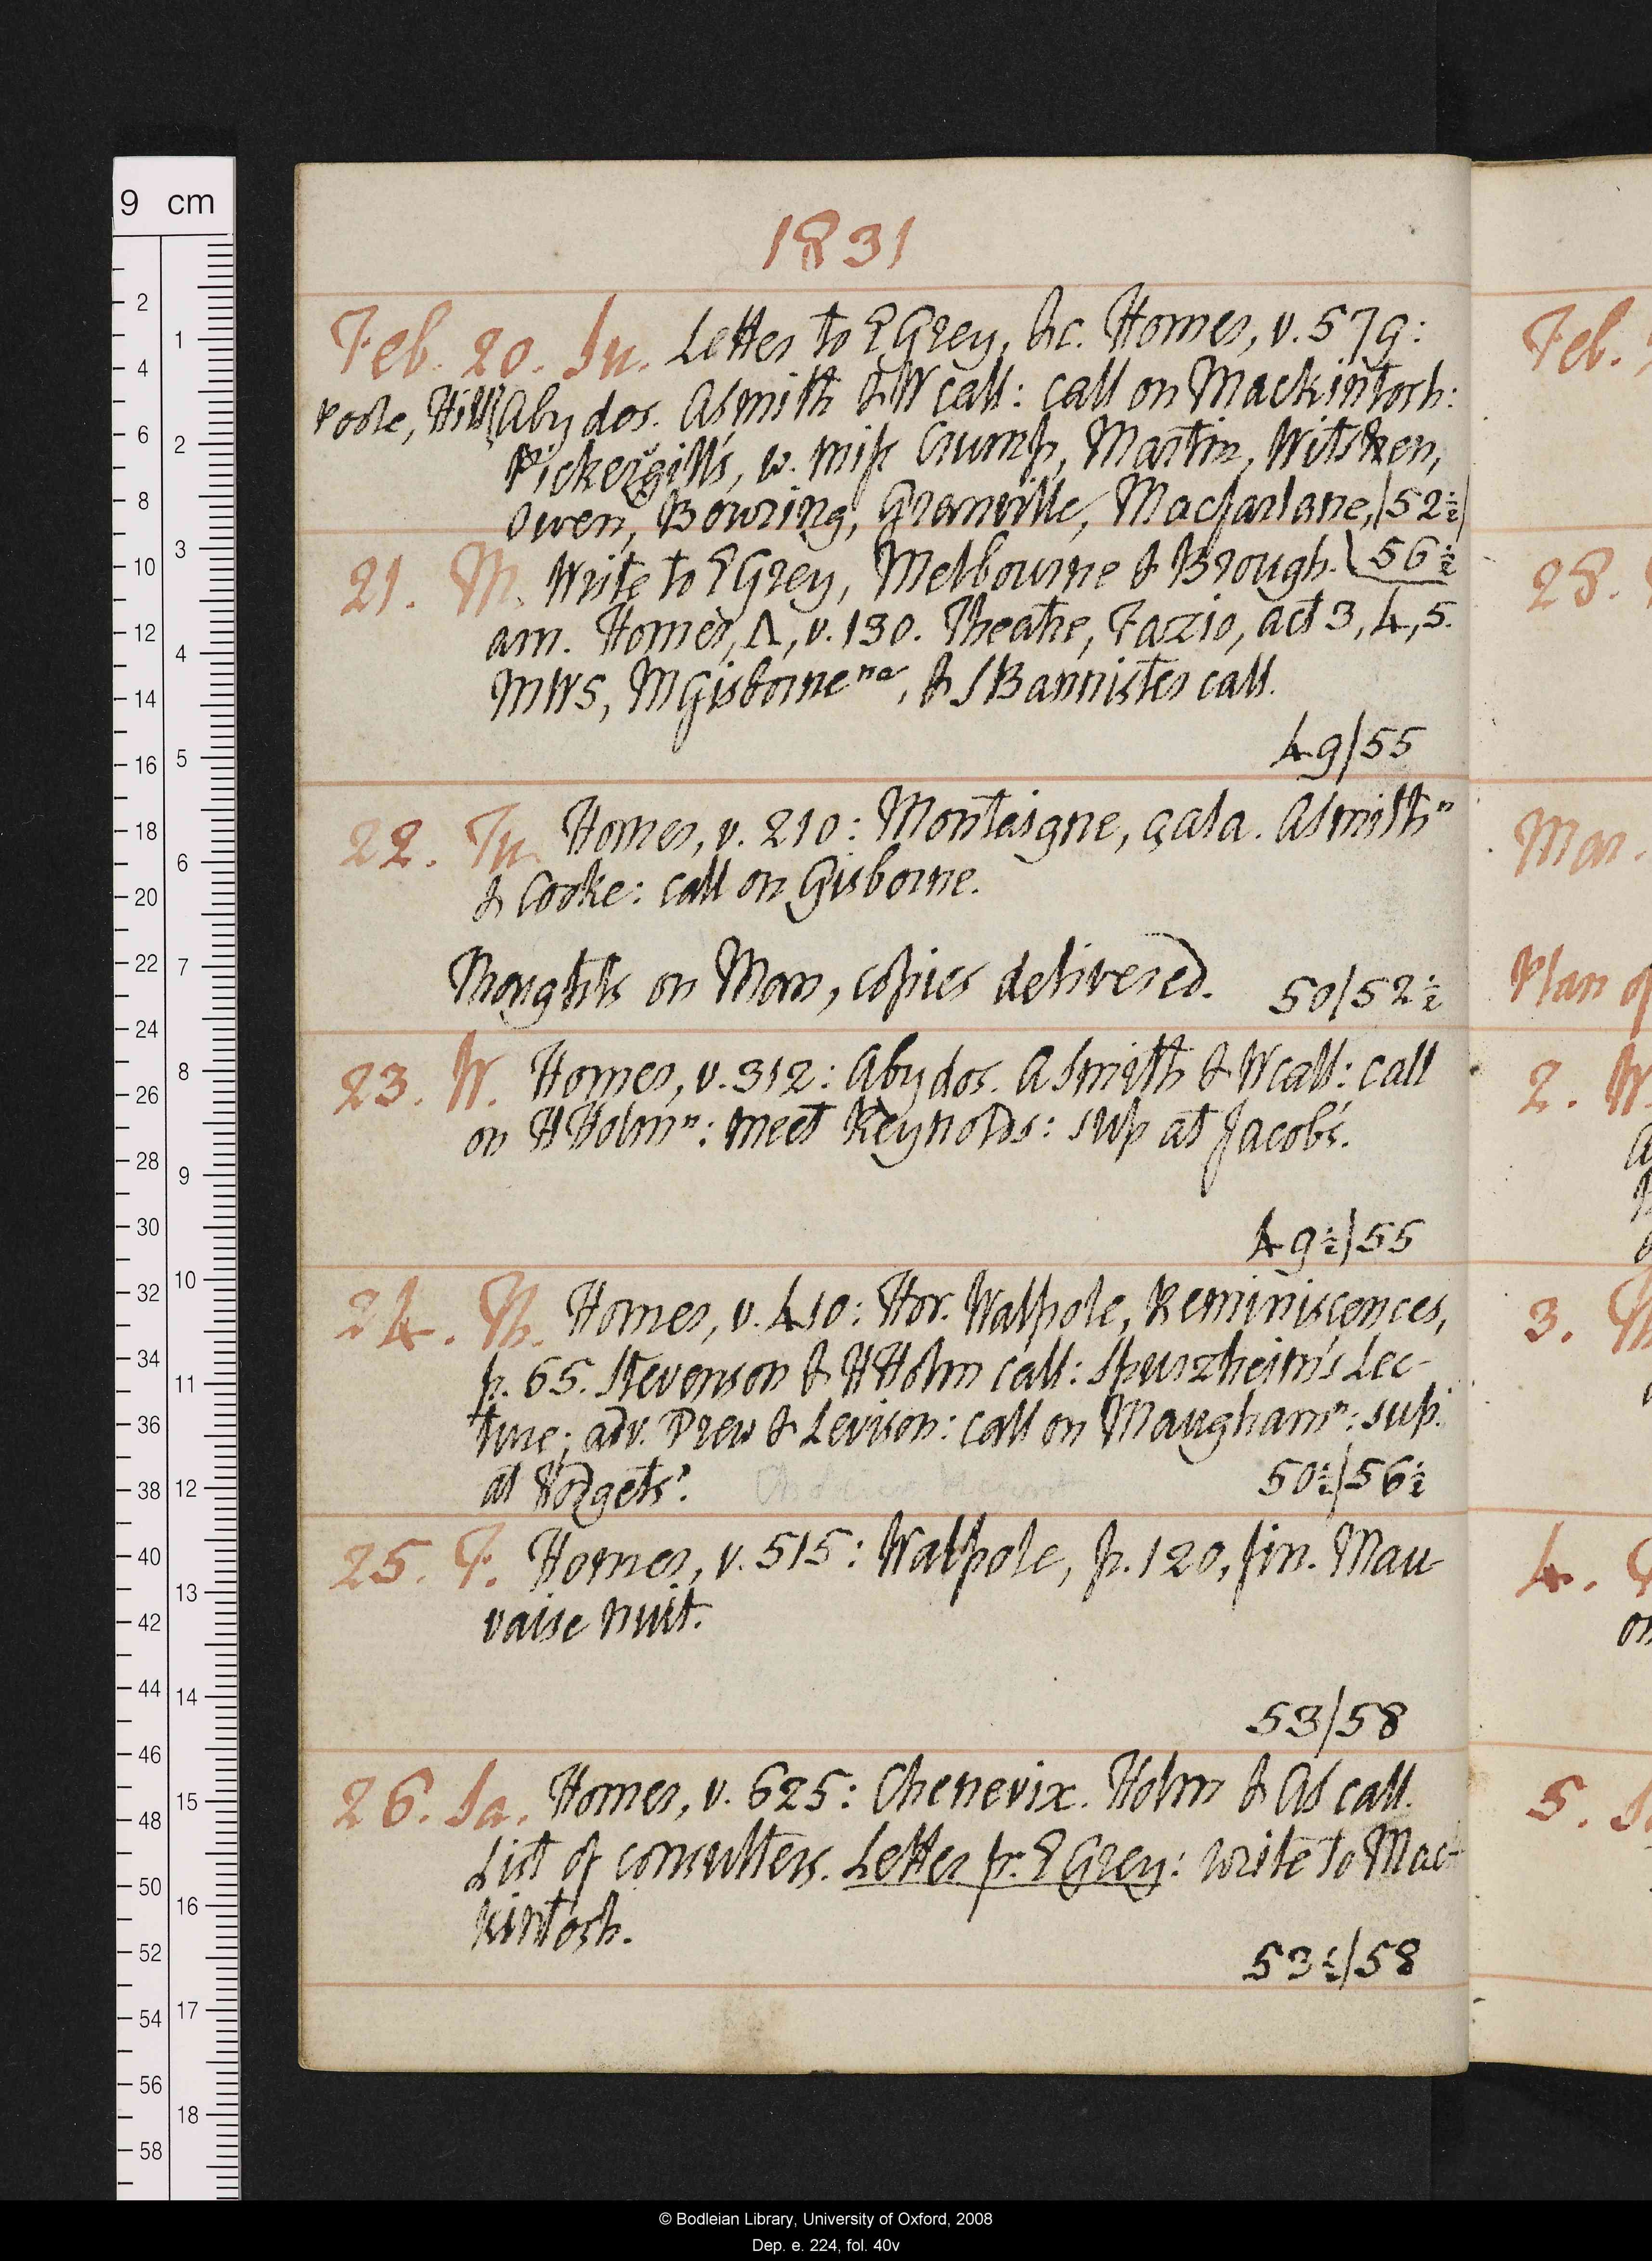 9 cm
1831
Feb. 20. Su. Letter to E Grey, &c. Homer, v. 579:
Poole, Hill Abydos. A Smith & W call: call on Mackintosh:
Pickersgill's, w. miss Crump, Martin, Witshen,
Owen, Bowring, Granville, Macfarlane, 52½
21. M. Write to E Grey, Melbourne & Brough- 56½
am. Homer, Λ, v. 130. Theatre, Fazio, act 3, 4, 5.
MWS, M Gisborne na, & S Bannister call.
49/55
22. Tu. Homer, v. 210: Montaigne, çala. A Smith n
& Cooke: call on Gisborne.
Thoughts on Man, copies delivered. 50/52½
23. W. Homer, v. 312: Abydos. A Smith & W call: call
on H Holm n: meet Reynolds: sup at Jacob's.
49½/55
24. Th. Homer, v. 410: Hor. Walpole, Reminiscences,
p. 65. Stevenson & H Holm call: Spurzheim's Lec-
ture; adv. Drew & Levison: call on Maugham n: sup.
at Hodgets'. 50½/56½
25. F. Homer, v. 515: Walpole, p. 120, fin. Mau
vaise nuit.
53/58
26. Sa. Homer, v. 625: Chenevix. Holm & AS call.
List of consulters. Letter fr. E Grey: write to Mac-
kintosh.
53½/58
Feb.
28.
Mar.
Plan of
2. W.
3. Th
4.
on
5.
© Bodleian Library, University of Oxford, 2008
Dep. e. 224, fol. 40v